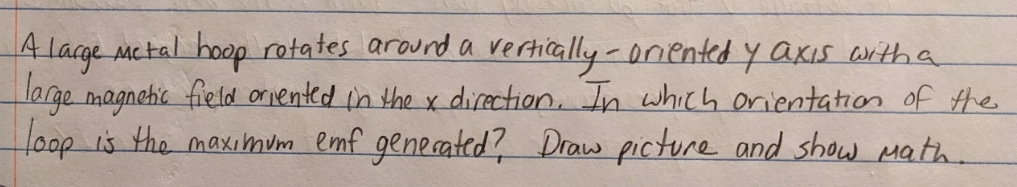 A large metal hoop rotates around a vertically-oriented y axis with a
large magnetic field oriented in the x direction. In which orientation of the
loop is the maximum emf generated? Draw picture and show math.